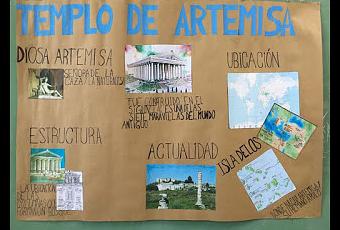 TEMPLO DE ARTEMISA
DIOSA ARTEMISA
SEÑORA DE LA
CAZA Y LA NATURALEZA
FUE CONSTRUIDO EN EL
SIGLO
ES UNA DE LAS
SIETE MARAVILLAS DEL MUNDO
ANTIGUO
UBICACIÓN
ESTRUCTURA
LA UBICACIÓN
DE LAS
COLUMNAS
BOSQUE
ACTUALIDAD
ISLA DELOS
DONDE NACIÓ